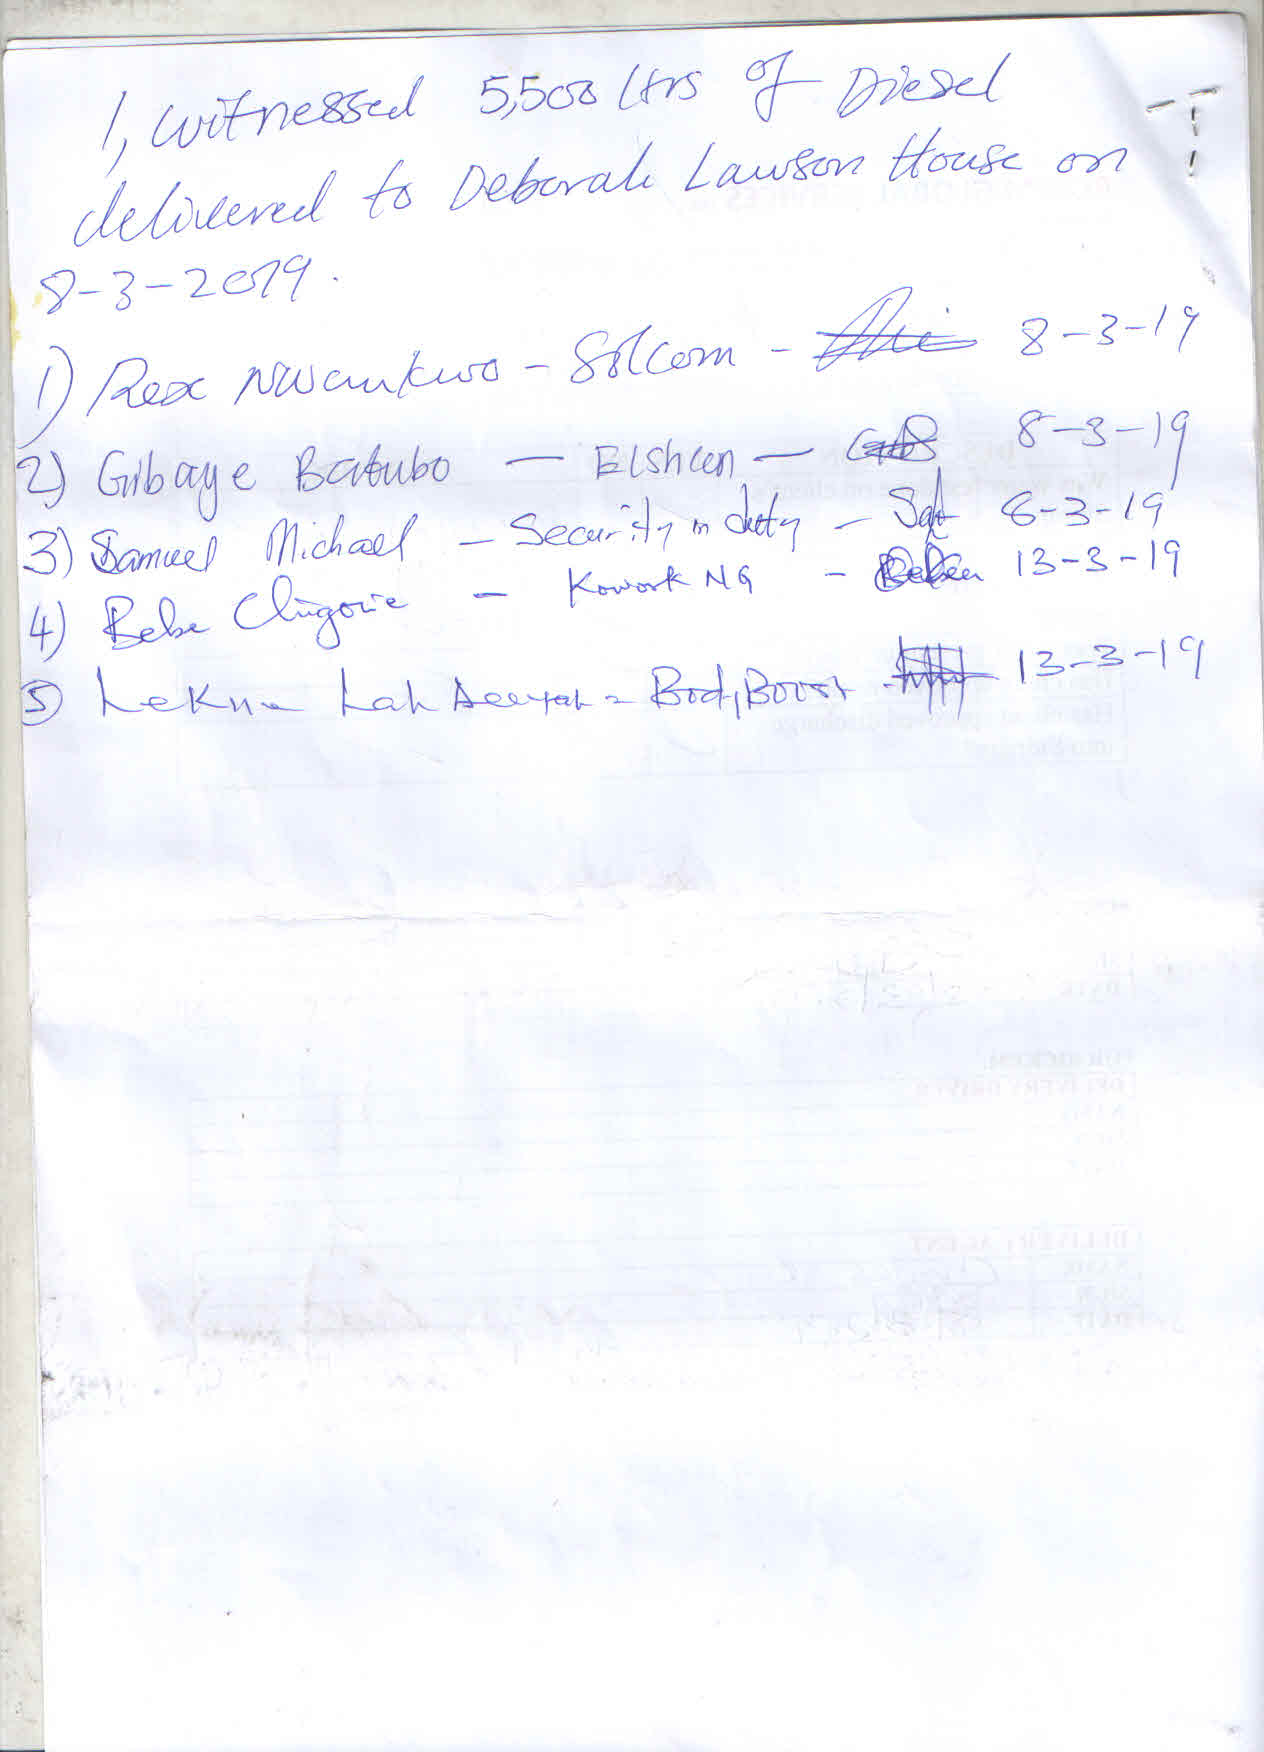 I, witnessed 5,500 Ltrs of Diesel
delivered to Deborah Lawson House on
8-3-2019.
1) Rex Nwankwo - Silcom - 8-3-19
2) Gibaye Batubo — Elsheen — 8-3-19
3) Samuel Michael - Security on duty - 8-3-19
4) Bebe Chigozie - Kowork NG - 13-3-19
5) Lah - BodyBoost - 13-3-19